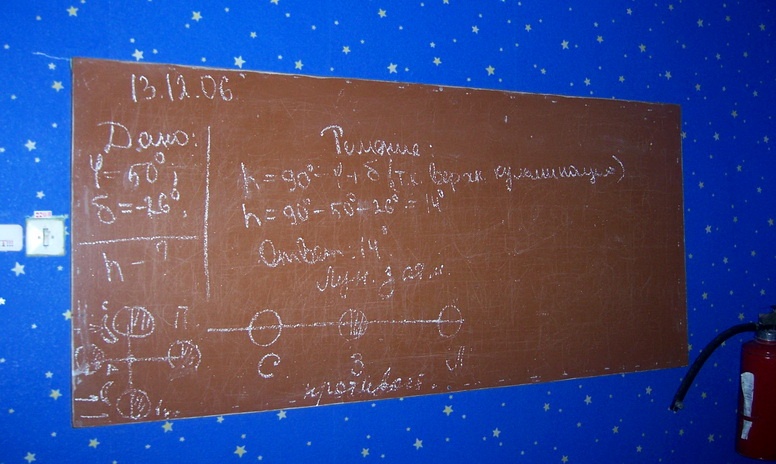 13.12.06
Дано:
φ=50°;
δ=-26°;
h-?
Решение:
h=90°-φ+δ (т.к. верхн. кульминация)
h=90°-50°-26°=14°
Ответ: 14°
Лун. зат.
П
С З Л
противост.